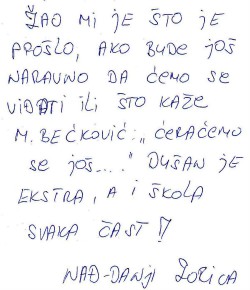 ŽAO MI JE ŠTO JE
PROŠLO, AKO BUDE JOŠ
NARAVNO DA ĆEMO SE
VIĐATI ILI ŠTO KAŽE
M. BEĆKOVIĆ: „ĆERAĆEMO
SE JOŠ...." DUŠAN JE
EKSTRA, A I ŠKOLA
SVAKA ČAST!
NAĐ-DANJI ZORICA